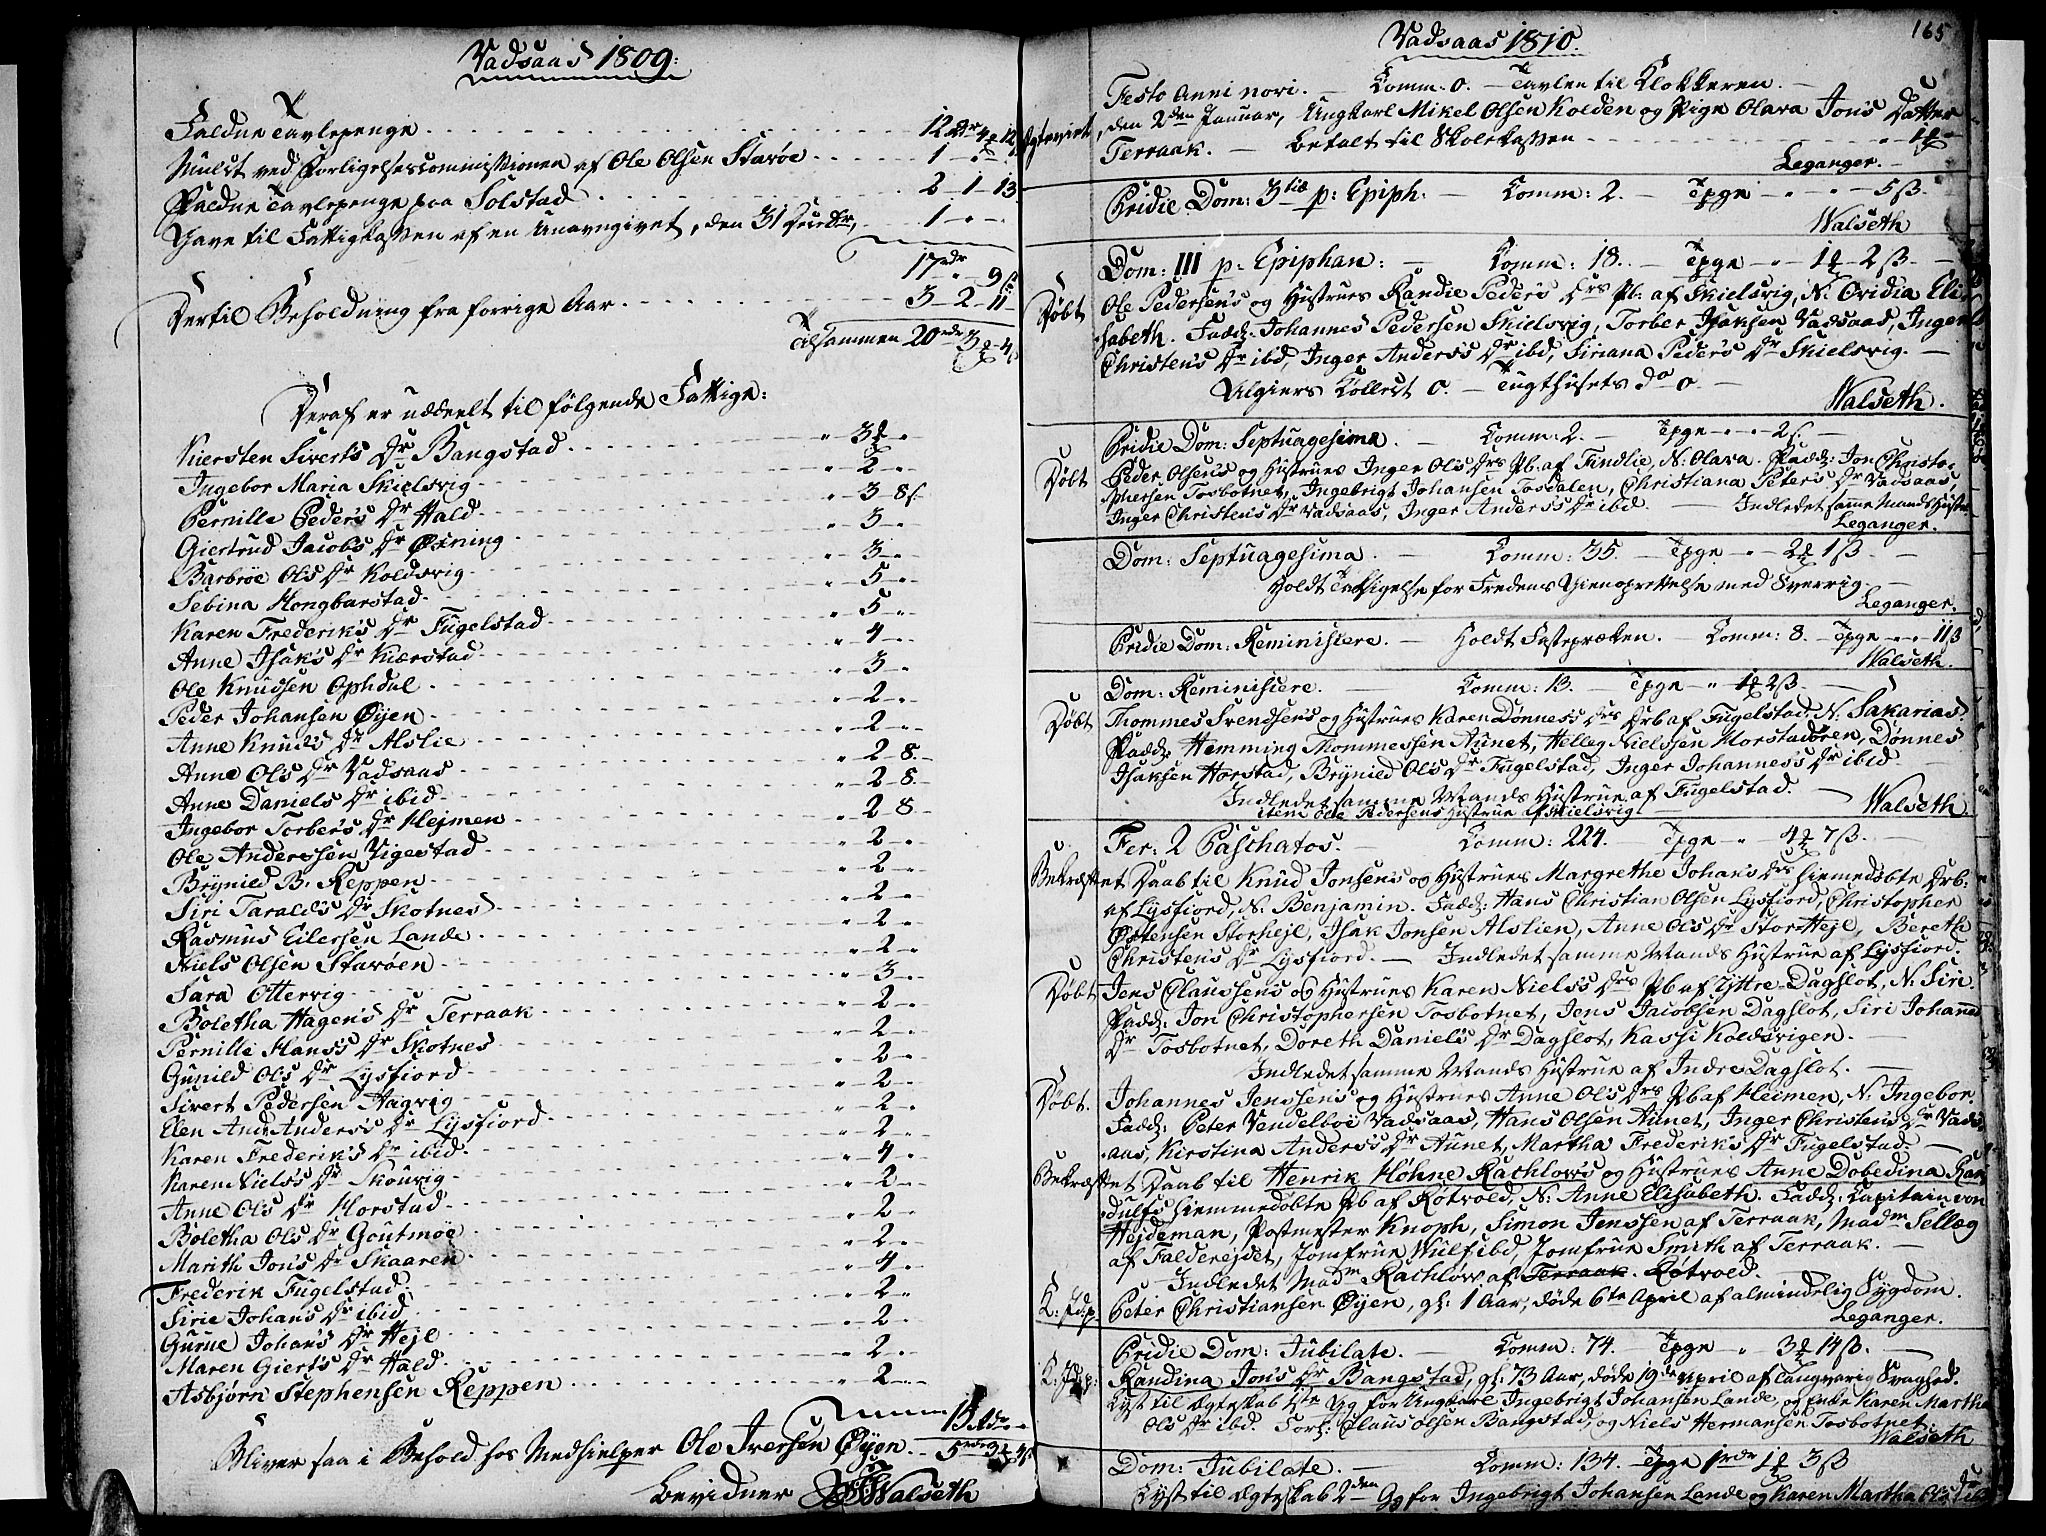 Vadsaas 1809:
Faldne Tavlepenge 12 rdr 4 12
Mulct ved Forligelsescommissionen af Ole Olsen Starøe 1 - -
Faldne Tavlepenge paa Solstad 2 - 1 - 13
Gave til Fattigkassen af en Unavngivet, den 31
17 rdr - 9 ß
Dertil Beholdning fra forrige Aar 3 - 2 - 11
Tilsammen 20 rdr 3 - 4
Deraf er uddeelt til følgende Fattige:
Kiersten Siverts Dr Bangstad 3
Ingebor Maria Skielsvig 2
Pernille Peders Dr Hald 3 - 8 ß
Giertrud Jacobs Dr Øsning 3
Barbroe Ols Dr Koldsvig 3
Sebina Hongbarstad 5
Karen Frederiks Dr Fugelstad 5
Anne Isaks Dr Kiærstad 4
Ole Knudsen Ophdal 3
Peder Johansen Øyen 2
Anne Knuds Dr Alslie 2
Anne Ols Dr Vadsaas 2 - 8
Anne Daniels Dr ibid 2 - 8
Ingebor Torbers Dr Hejmen 2 - 8
Ole Anderssen Vigestad 2
Brynild B. Reppen 2
Siri Taralds Dr Skotnes 2
Rasmus Eilersen Lande 2
Niels Olsen Starøen 2
Sara Ottervig 3
Boletha Hagens Dr Terraak 2
Pernille Hans's Dr Skotnes 2
Gunild Ols Dr Lysfiord 2
Sivert Pedersen Aagvog 2
Elen And: Anders's Dr Lysfiord 2
Karen Frederiks Dr ibid 2
Karen Niels's Dr Skoüvig 4
Anne Ols Dr Horstad 2
Boletha Ols Dr Goutmoe 2
Marith Jons Dr Skaaren 2
Frederik Fugelstad 4
Sirie Johans Dr ibid 2
Gurue Johans Dr Hejl 2
Maren Gierts Dr Hald 2
Asbjørn Stephensen Reppen 2
15 rdr
Bliver saa i Behold hos Medhielper Ole Iversen Øyen 5 rdr 3 - 4 ß
bevidner Walseth
Vadsaas 1810.
165
Festo Anni novi. - Comm: 0. - Tavlen til Klokkeren.
Egteviet, den 2den Januar, Ungkarl Mikel Olsen Kolden og Pige Olava Jons Datter
Terraak. - betalt til Skolekassen 1
Leganger.
Pridie Dom: 3tiæ p: Epiph. - Comm: 2. - Tpge - 5 ß.
Walseth
Dom: III p: Epiphan: - Comm: 18. - Tpge - 1 - 2 ß
Døbt Ole Pedersens og Hustrues Randie Peders Drs Pb: af Skielsvig, N: Ovidia Eli-
sabeth. Fadd: Johannes Pedersen Skielsvig, Torber Isaksen Vadsaas, Inger
Christens Dr ibid, Inger Anders's Dr ibid, Siriana Peders Dr Skielsvig.
Algiers Collect 0. - Tugthusets do 0.
Walseth.
Pridie Dom: Septuagesima. - Comm: 2. - Tpge - 2 ß.
Døbt Peder Olsens og Hustrues Inger Ols Drs Pb: af Tindlie, N: Olava. Fadd: Jon Christo-
phersen Tosbotnet, Ingebrigt Johansen Tosdalen, Christiana Peters Dr Vadsaas,
Inger Christens Dr Vadsaas, Inger Anders's Dr ibid. - Indledet samme Mands Hustr
Leganger.
Dom: Septuagesima. - Comm: 35. - Tpge - 2 1 ß.
Holdt Taksigelse for Fredens Gienoprettelse med Sverrig.
Leganger.
Pridie Dom: Reminiscere. - Holdt Fasteprædken. - Comm: 8. - Tpge - 11 ß
Walseth.
Dom: Reminiscere. - Comm: 13. - Tpge - 1 2 ß
Døbt Thommes Svendsens og Hustrues Karen Dønnes's Drs Drb af Fugelstad, N: Sakarias.
Fadd: Hemming Thommessen Aunet, Helleg Nielssen Horstadøren, Dønnes
Isaksen Horstad, Brynild Ols Dr Fugelstad, Inger Johannes's Dr ibid
Indledet samme Mands Hustrue af Fugelstad.
item Ole Pedersens Hustrue af Skielsvig.
Walseth.
Fer: 2 Paschatos. - Comm: 224. - Tpge - 4 7 ß.
Bekræftet Daab til Knud Jonsens og Hustrues Margrethe Johans Drs hiemmedøbte Drb:
af Lysfiord, N: Benjamin. Fadd: Hans Christian Olsen Lysfiord, Christopher
Østensen Storhejl, Isak Jonsen Alslien, Anne Ols Dr Stor-Hejl, Bereth
Christens Dr Lysfiord. - Indledet samme Mands Hustrue af Lysfiord.
Døbt Jens Claussens og Hustrues Karen Niels's Drs Pb af Yttre-Dagslot, N: Siri.
Fadd: Jon Christophersen Tosbotnet, Jens Jacobsen Dagslot, Siri Johanns
Dr Tosbotnet, Doreth Daniels Dr Dagslot, Kassi Koldsvigen.
Indledet samme Mands Hustrue af Indre Dagslot.
Døbt. Johannes Jenssens og Hustrues Anne Ols Drs Pb af Heimen, N: Ingebor.
Fadd: Peter Vendelboe Vadsaas, Hans Olsen Aunet, Inger Christens Dr Vads-
aas, Kirstina Anders's Dr Aunet, Martha Frederiks Dr Fugelstad.
Bekræftet Daab til Henrik Høhne Rachlows og Hustrues Anne Dobedina Ran-
dulfs hiemmedøbte Pb af Røtvold, N: Anne Elisabeth. Fadd: Capitain von
Hejdeman, Postmester Knoph, Simon Jenssen af Terraak, Madm Selleg
af Falderejdet, Jomfrue Wulf ibd, Jomfrue Smith af Terraak.
Indledet Madm Rachlow af Terraak. Røtvold.
K: Jdp. Peter Christiansen Øyen, gl: 1 Aar, døde 6te April af almindelig Sygdom.
Leganger.
Pridie Dom: Jubilate. - Comm: 74. - Tpge - 3 14 ß.
K: Jdp: Randina Jons Dr Bangstad, gl: 73 Aar, døde 19de April af langvarig Svaghed.
Lyst til Ægteskab 1te Gg for Ungkarl Ingebrigt Johansen Lande, og Enke Karen Martha
Ols Dr ibd. Forl: Claus Olsen Bangstad, og Niels Hermansen Tosbotnet.
Walseth
Dom: Jubilate. - Comm: 134. - Tpge 1 rdr 1 3 ß
Lyst til Ægteskab 2den Gg for Ingebrigt Johansen Lande og Karen Martha Ols Dr